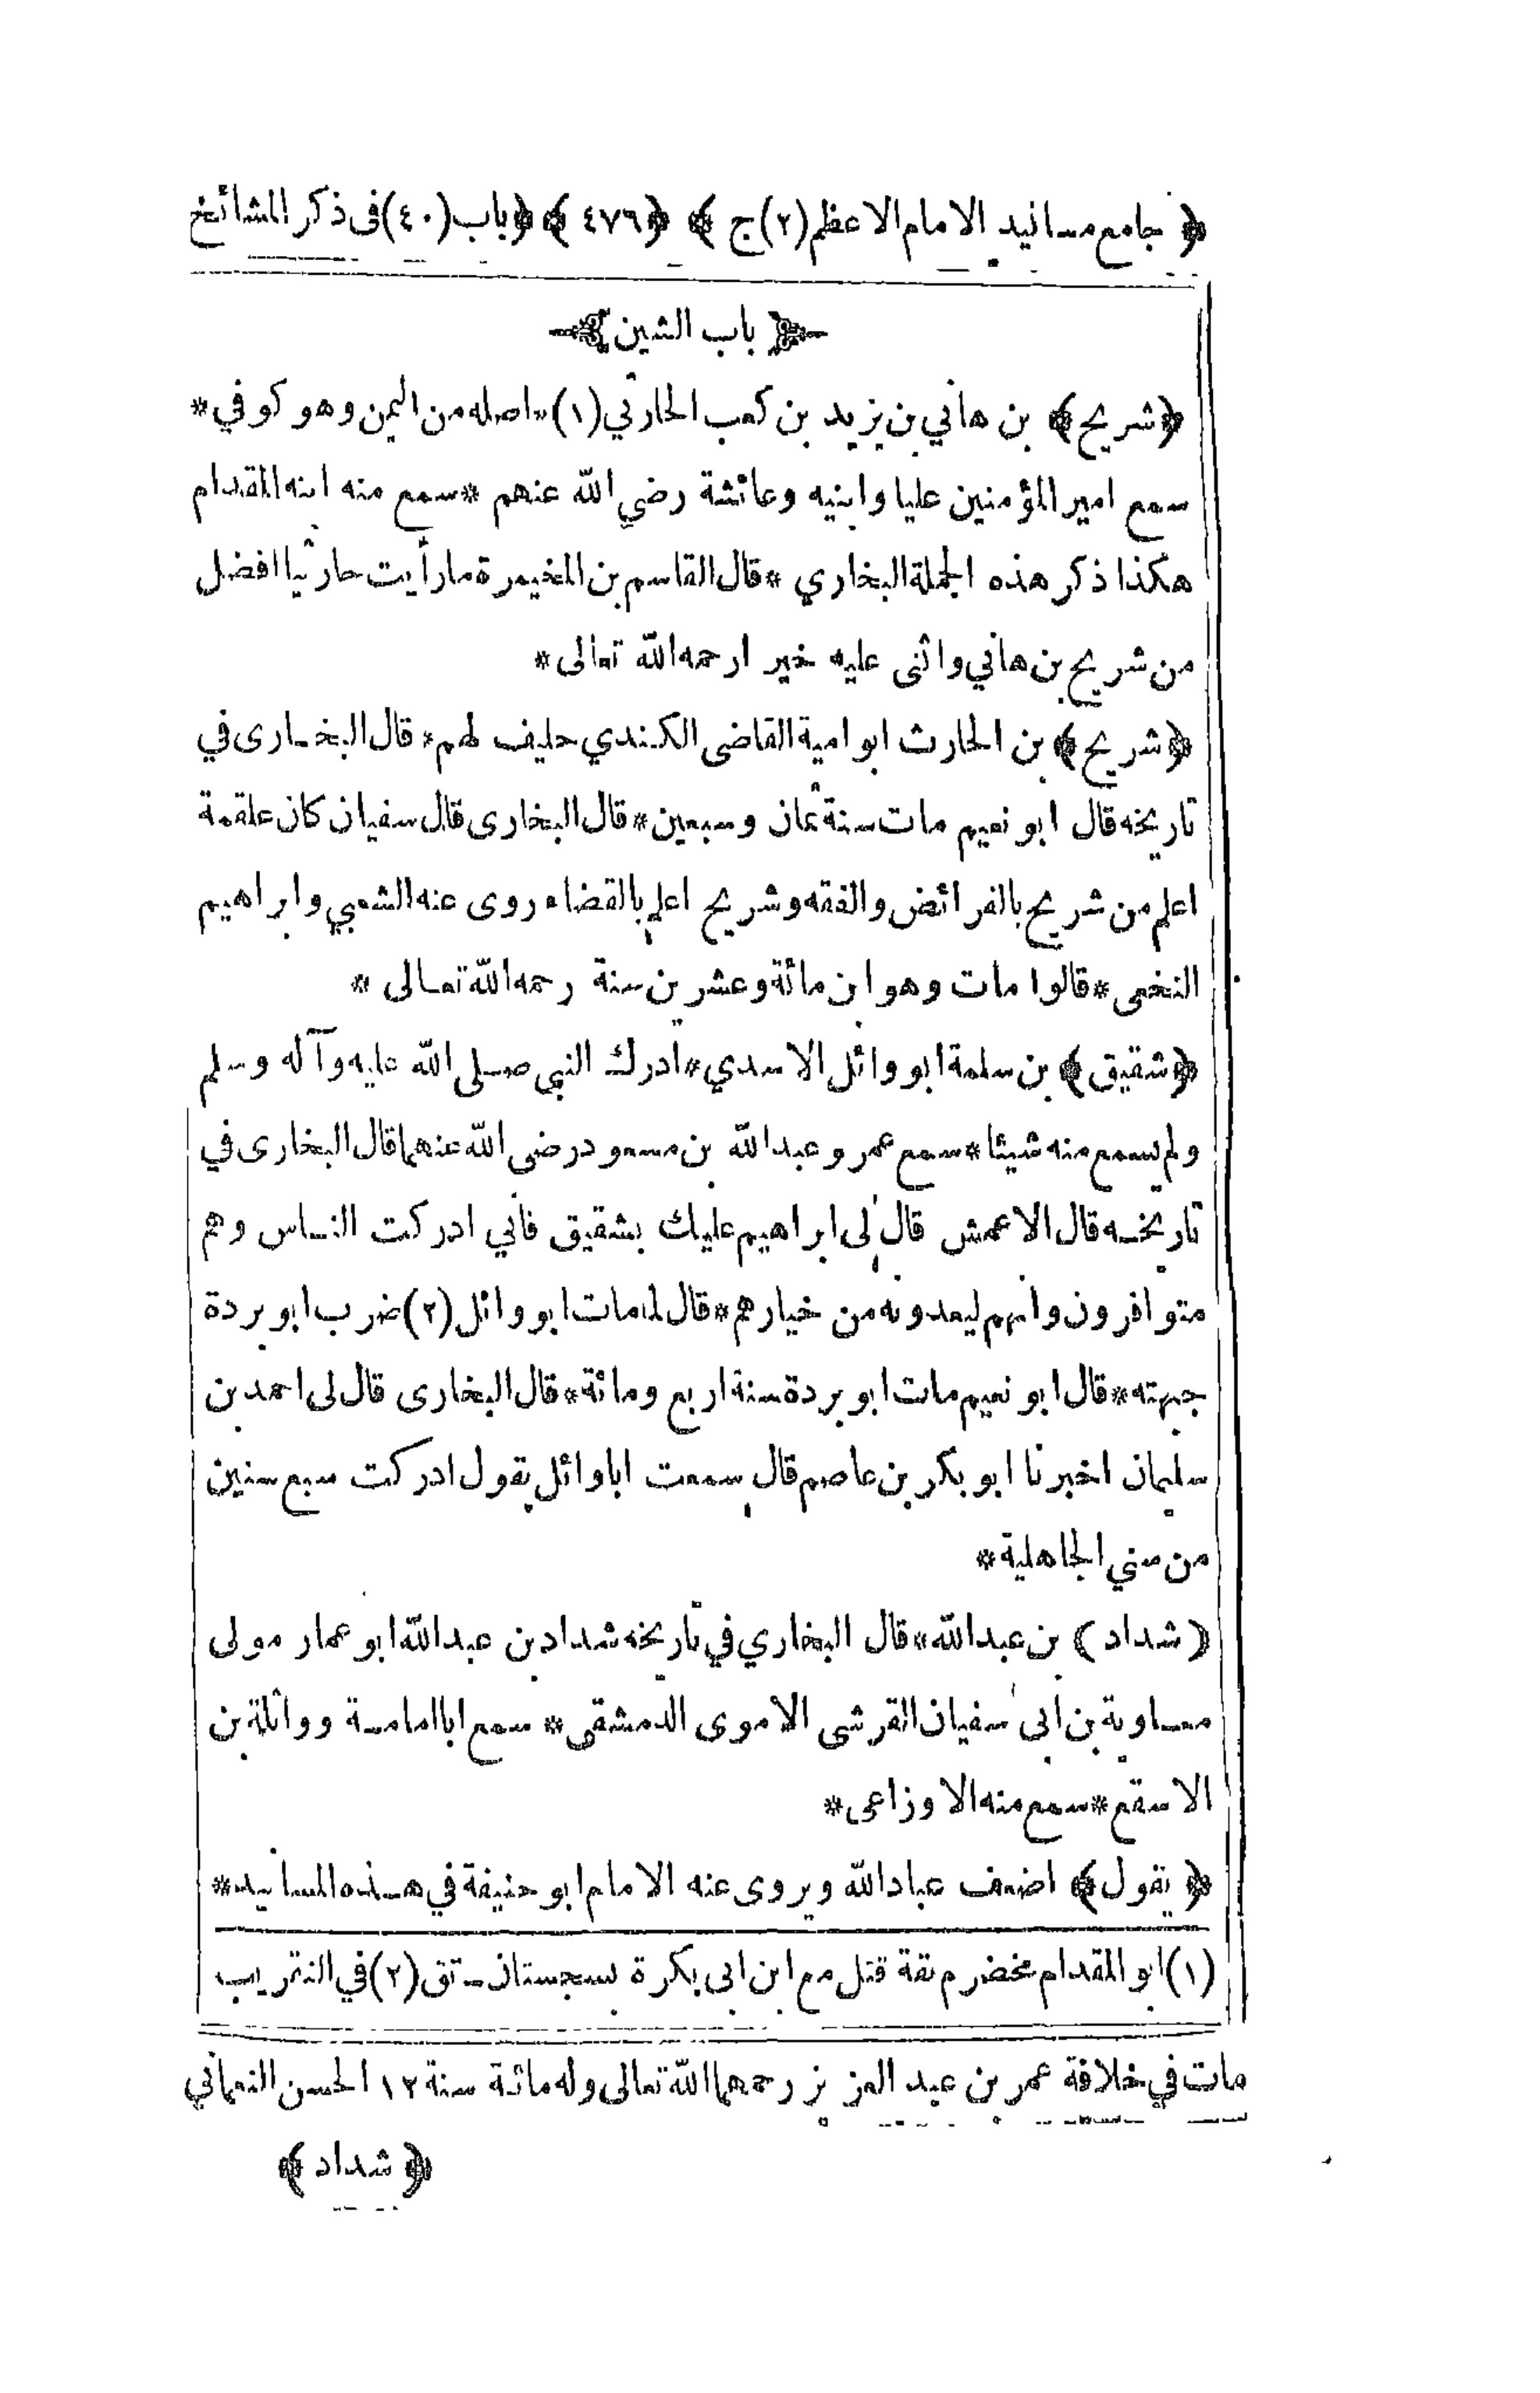 ﴿ جامع مسانيد الامام الاعظم (٢) ج ﴾ ﴿ ٤٧٦ ﴾ ﴿ باب (٤٠) فى ذكر المشائخ
﴿ باب الشين ﴾
﴿ شريح ﴾ بن هاني بن يزيد بن كعب الحارثي (١) * اصله من اليمن وهو كوفي *
سمع امير المؤمنين عليا وابنيه وعائشة رضي الله عنهم * سمع منه ابنه المقدام
هكذا ذكر هذه الجملة البخاري * قال القاسم بن المخيمرة ما رأيت حارثيا افضل
من شريح بن هاني واثنى عليه خيرا رحمه الله تعالى *
﴿ شريح ﴾ بن الحارث ابو امية القاضى الكندي حليف لهم * قال البخارى في
تاريخه قال ابو نعيم مات سنة ثمان وسبعين * قال البخارى قال سفيان كان علقمة
اعلم من شريح بالفرائض والفقه وشريح اعلم بالقضاء روى عنه الشعبي وابراهيم
النخعى * قالوا مات وهو ابن مائة وعشرين سنة رحمه الله تعالى *
﴿ شقيق ﴾ بن سلمة ابو وائل الاسدي * ادرك النبي صلى الله عليه وآله وسلم
ولم يسمع منه شيئا * سمع عمر وعبد الله بن مسعود رضى الله عنهما قال البخارى في
تاريخه قال الاعمش قال لى ابراهيم عليك بشقيق فانى ادركت الناس وهم
متوافرون وانهم ليعدونه من خيارهم * قال لما مات ابو وائل (٢) ضرب ابو بردة
جبهته * قال ابو نعيم مات ابو بردة سنة اربع ومائة * قال البخارى قال لى احمد بن
سليمان اخبرنا ابو بكر بن عاصم قال سمعت ابا وائل يقول ادركت سبع سنين
من سني الجاهلية *
( شداد ﴾ بن عبد الله * قال البخاري في تاريخه شداد بن عبد الله ابو عمار مولى
معاوية بن ابى سفيان القرشى الاموى الدمشقى * سمع ابا امامة وواثلة بن
الاسقع * سمع منه الاوزاعى *
﴿ يقول ﴾ اضعف عباد الله ويروى عنه الامام ابو حنيفة في هذه المسانيد *
(١) ابو المقدام مخضرم ثقة قتل مع ابن ابى بكرة بسجستان - تق (٢) في التقريب
مات في خلافة عمر بن عبد العزيز رحمهما الله تعالى وله مائة سنة ١٢ الحسن النعماني
﴿ شداد ﴾